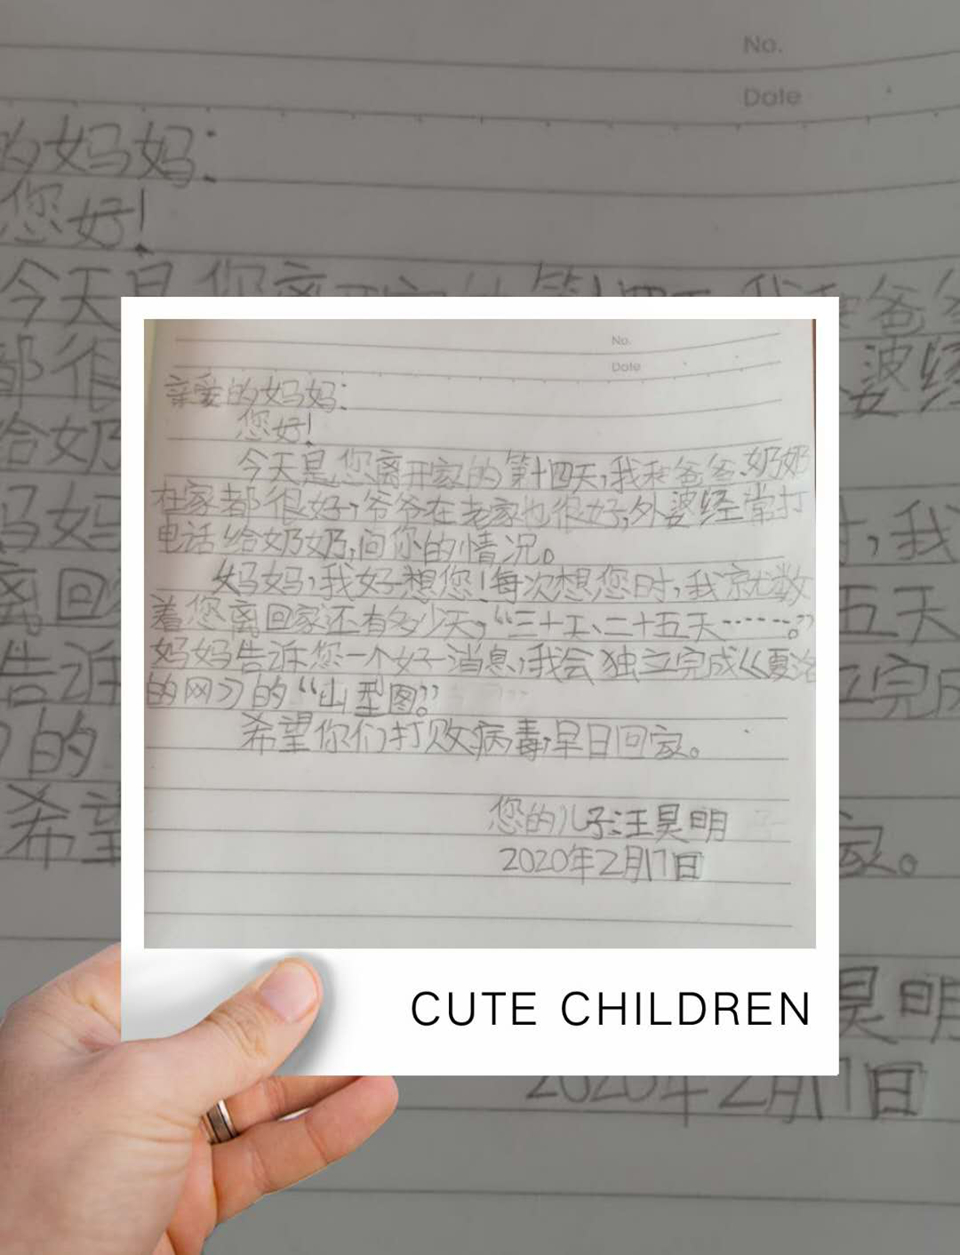 No.
Date
的妈妈:
您好!
No.
Date
亲爱的妈妈:
您好!
今天是您离开家的第十四天,我和爸爸、奶奶
在家都很好,爷爷在老家也很好,外婆经常打
电话给奶奶,问你的情况。
妈妈,我好想您!每次想您时,我就数
着您离回家还有多少天,“三十天、二十五天……。”
妈妈告诉您一个好消息,我会独立完成《夏洛
的网》的“山型图”。
希望你们打败病毒,早日回家。
您的儿子:汪昊明
2020年2月17日
CUTE CHILDREN
昊明
2020年2月17日